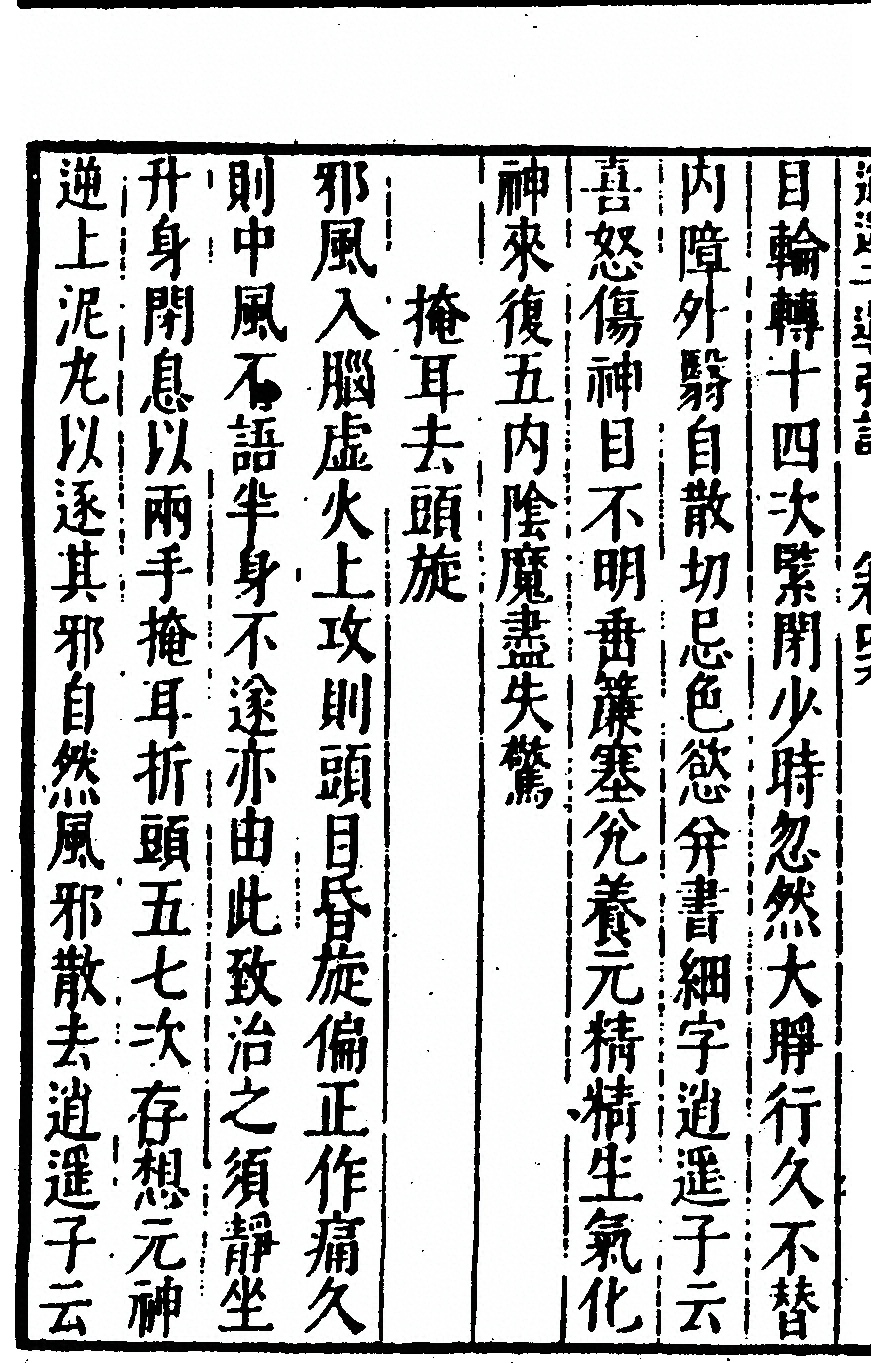 目輪轉十四次緊閉少時忽然大睜行久不替
内障外翳自散切忌色慾并書細字逍遥子云
喜怒傷神目不明垂簾塞兊養元精精生氣化
神來復五内陰魔盡失驚
掩耳去頭旋
邪風入腦虛火上攻則頭目昏旋偏正作痛久
則中風不語半身不遂亦由此致治之須靜坐
升身閉息以兩手掩耳折頭五七次存想元神
逆上泥丸以逐其邪自然風邪散去逍遥子云